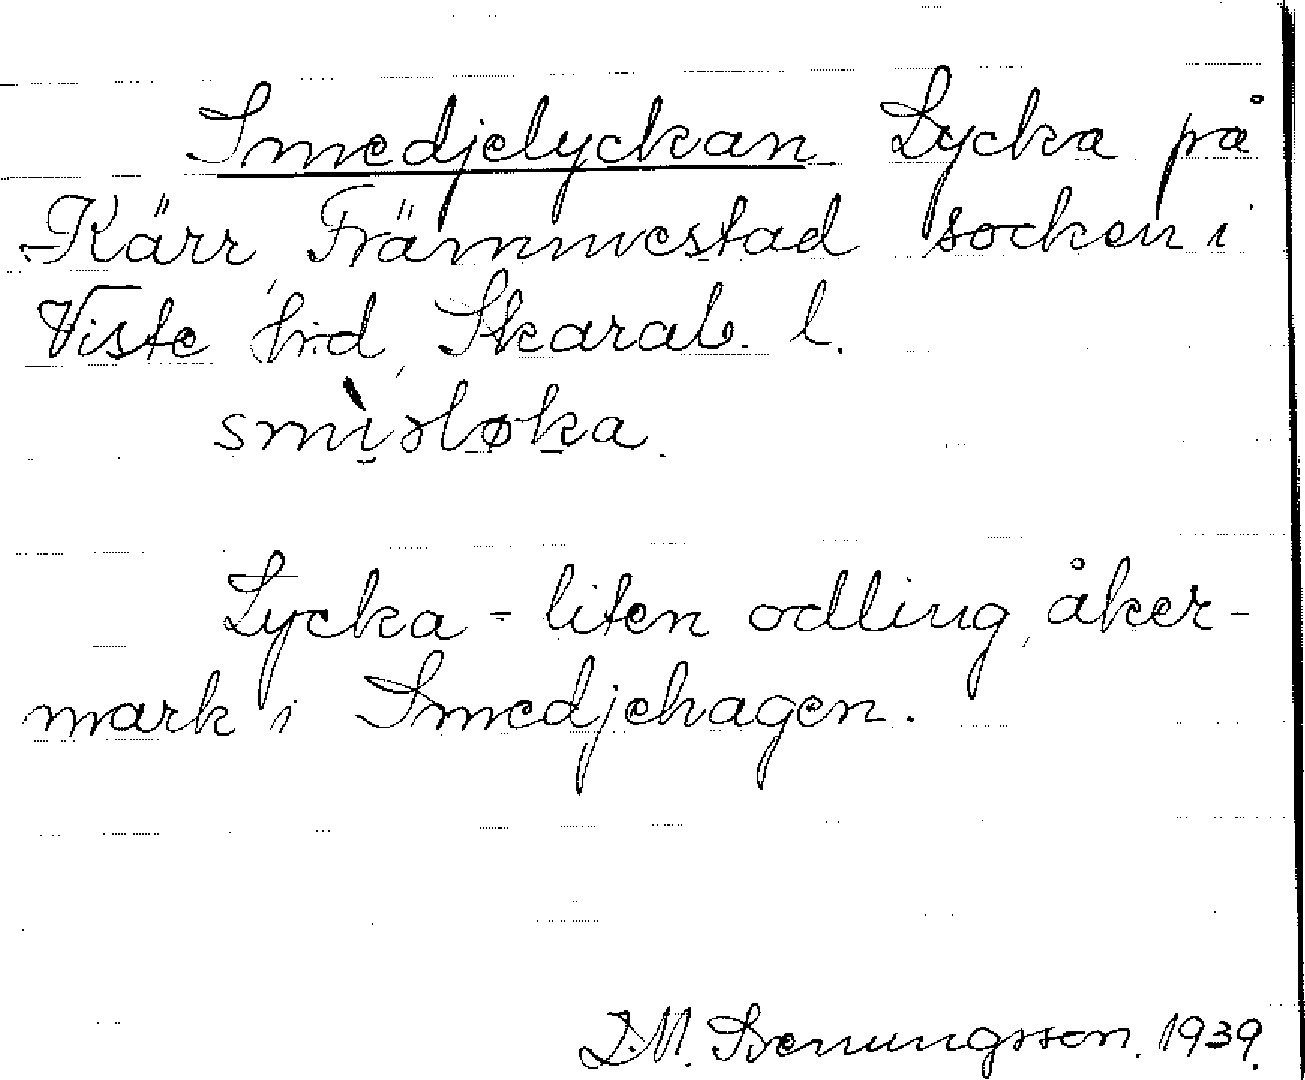 Smedjelyckan Lycka på
Kärr, Främmestad socken i
Viste hd, Skarab. l.
smìəløka.
Lycka - liten odling, åker-
mark i Smedjehagen.
D.M. Svenungsson. 1939.